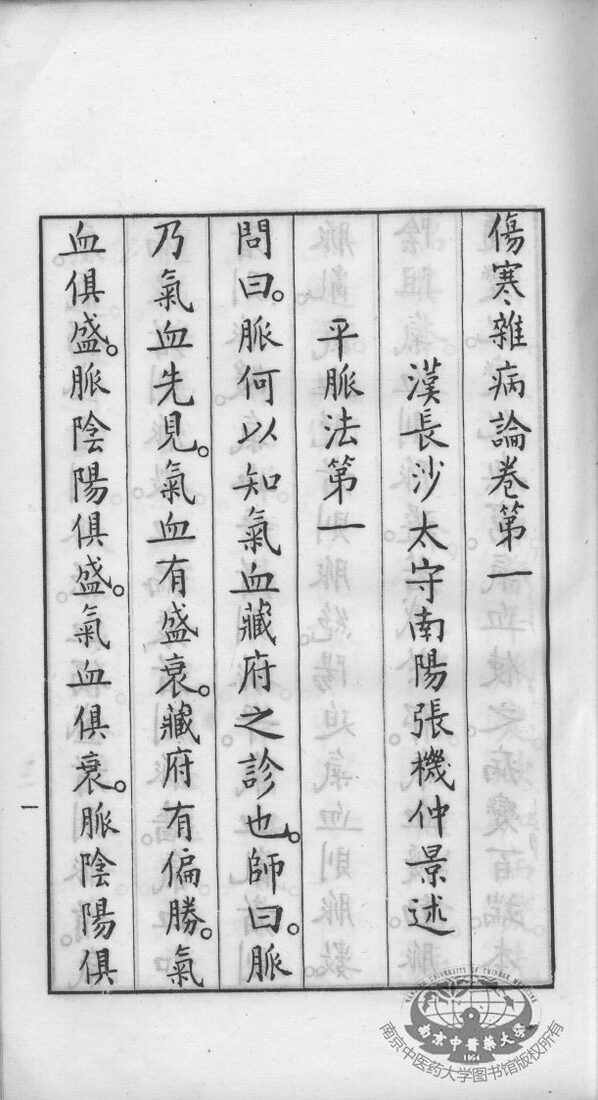 傷寒雜病論卷第一
漢長沙太守南陽張機仲景述
平脈法第一
問曰。脈何以知氣血藏府之診也。師曰。脈
乃氣血先見。氣血有盛衰。藏府有偏勝。氣
血俱盛。脈陰陽俱盛。氣血俱衰。脈陰陽俱
一
NANJING UNIVERSITY OF CHINESE MEDICINE
南京中醫藥大學
1954
南京中医药大学图书馆版权所有